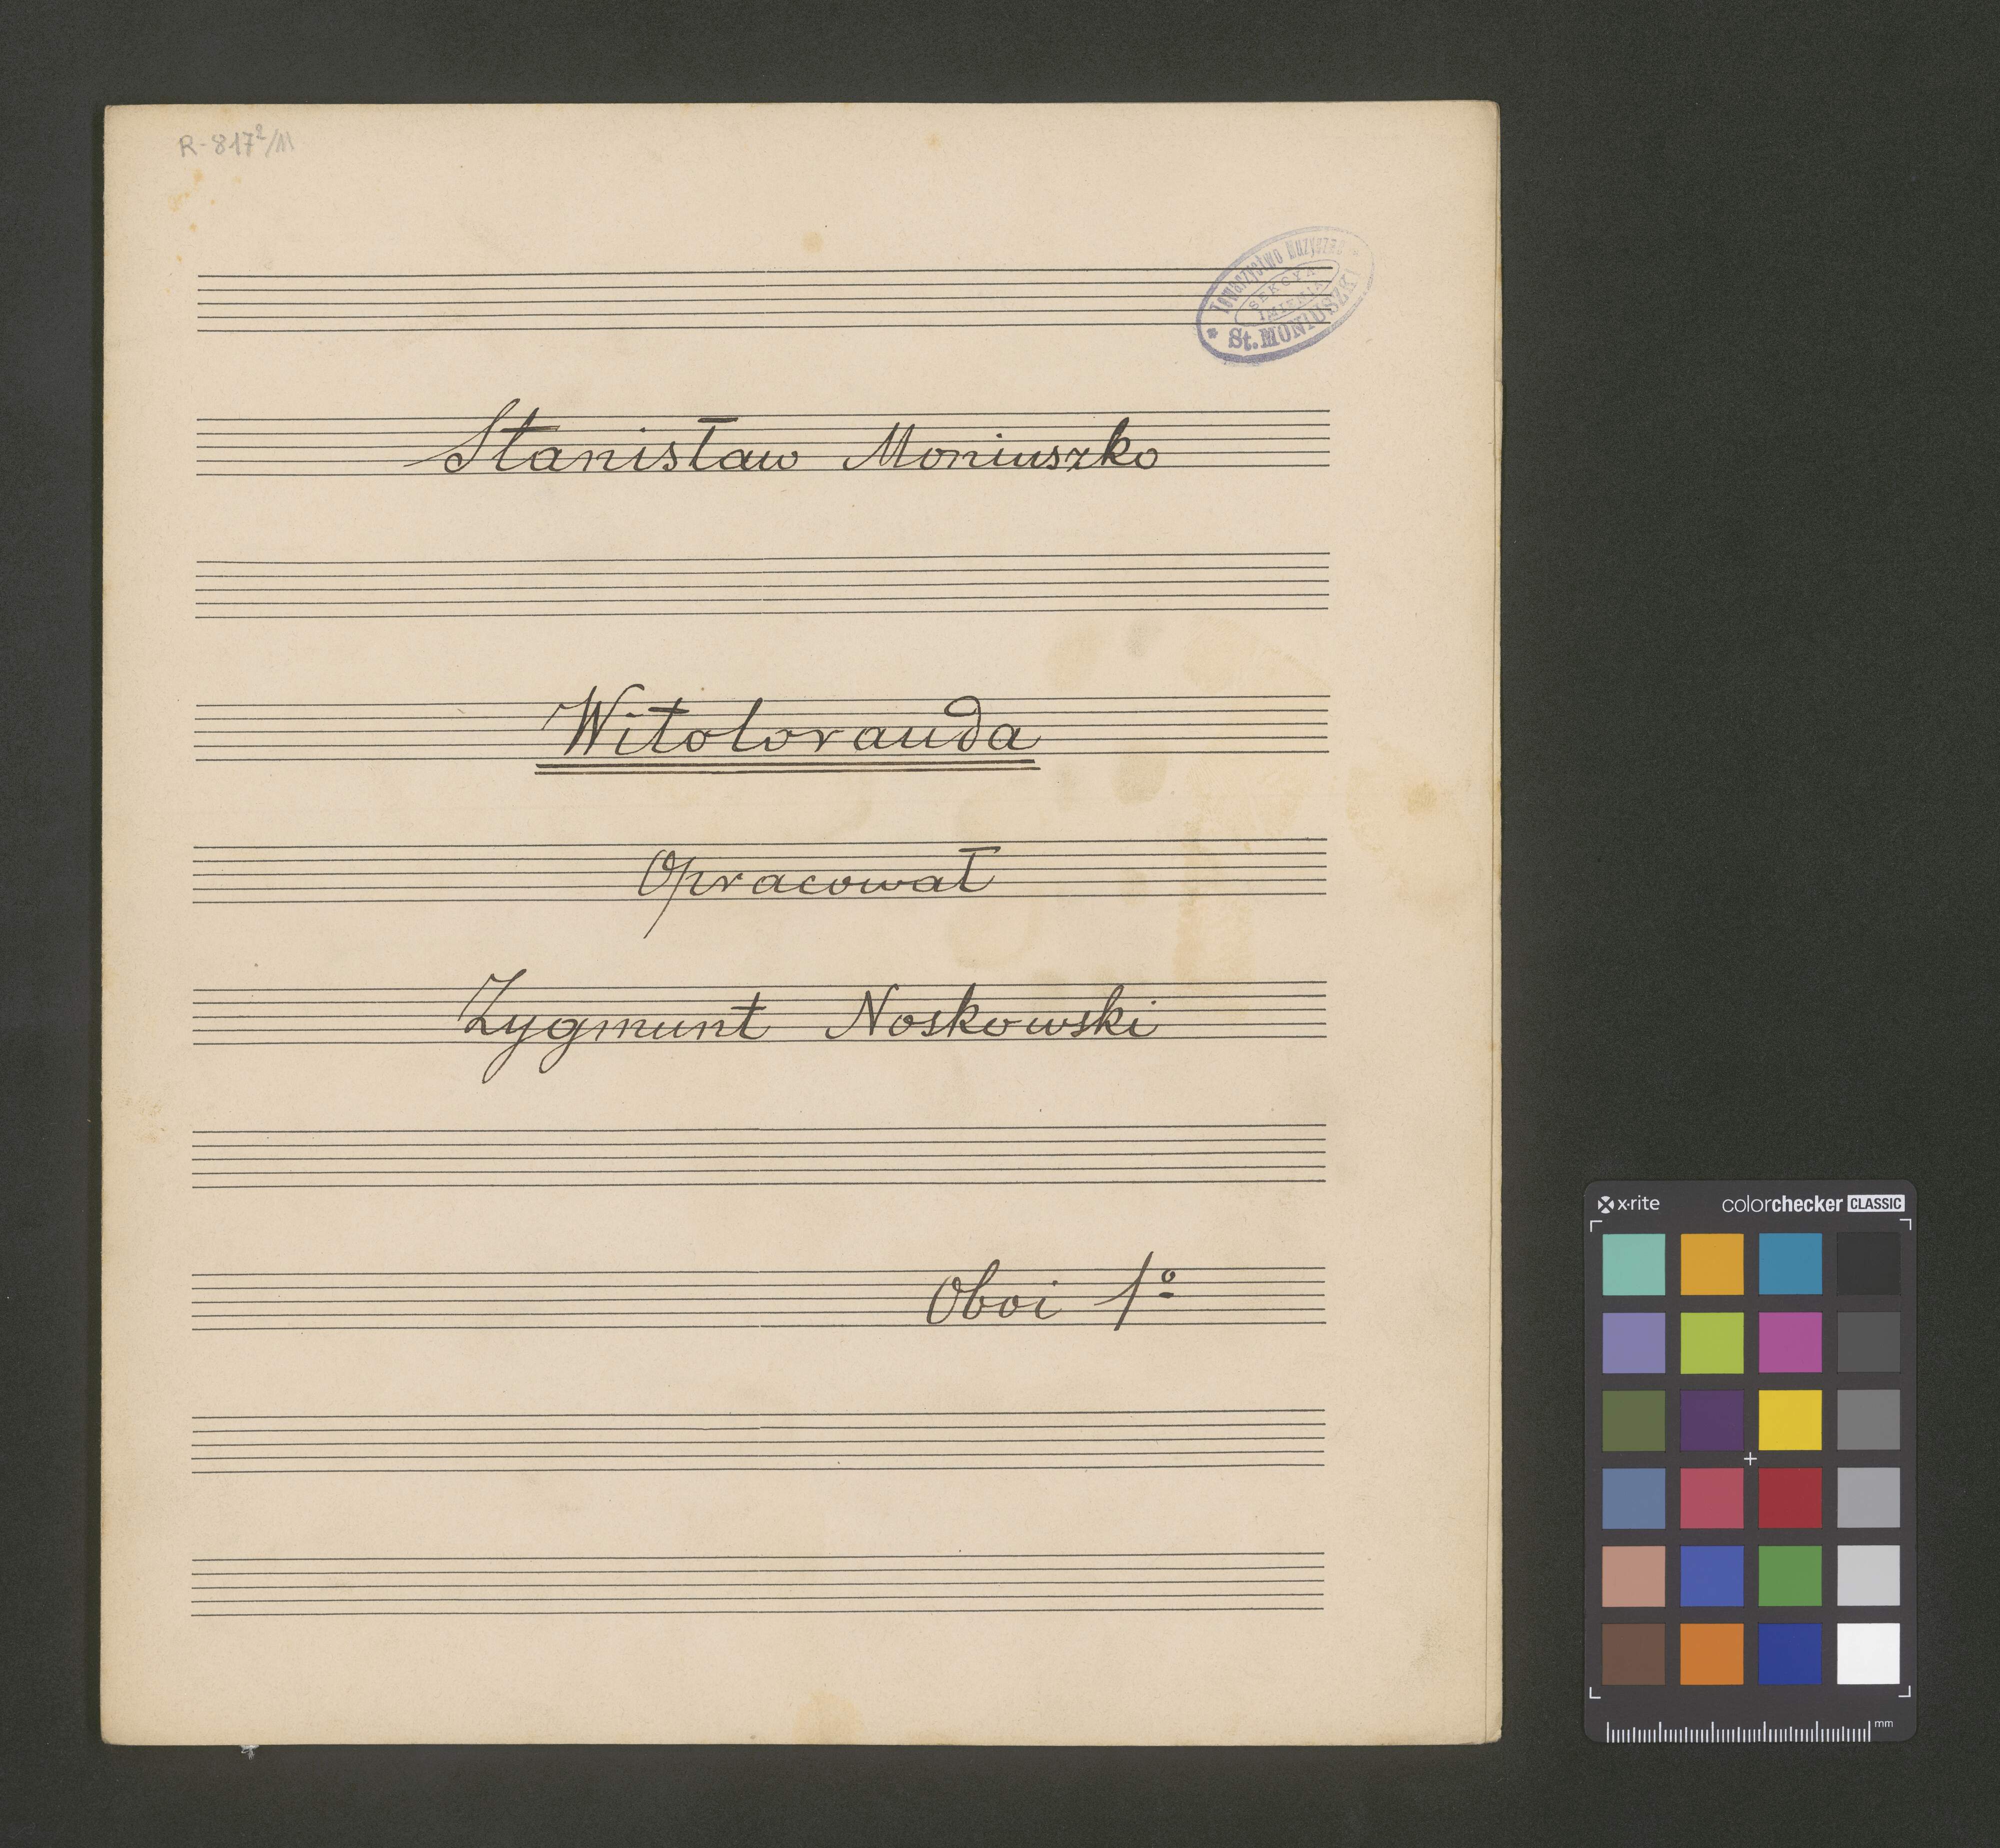 R-817²/11
Towarzystwo Muzyczne
SEKCYA
IMIENIA
St. MONIUSZKI
Stanisław Moniuszko
Witolorauda
Opracował
Zygmunt Noskowski
Oboi 1º
x·rite colorchecker CLASSIC
mm